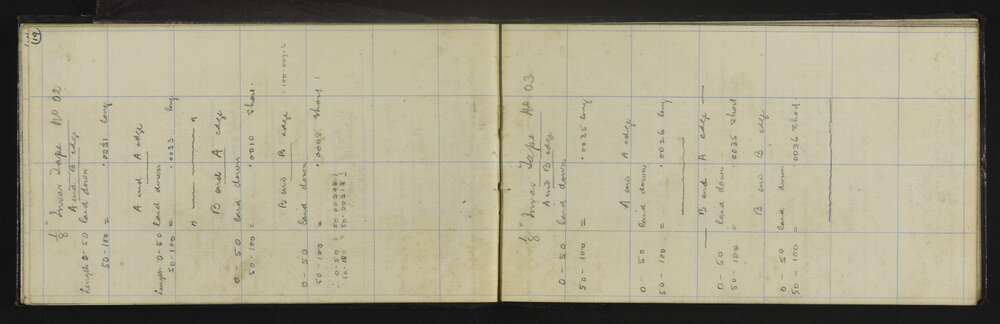 19
1/8" Invar Tape No 02
A and B edge
Length 0-50 laid down
50-100 = .0031 long
A and A edge
Length 0-50 laid down
50-100 = .0033 long
" "
B and A edge
0-50 laid down
50-100 = .0010 Short
B and B edge -100.00716
0-50 laid down
50-100 = .0008 Short
∴ 0-50 = 50.00398}
50-100 = 50.00318}
1/8" Invar Tape No 03
A and B edge
0-50 laid down
50-100 = .0035 long
A and A edge
0 50 laid down
50-100 = .0026 long
B and A edge
0-50 laid down
50-100 = .0035 Short
B and B edge
0-50 laid down
50-100 = .0036 Short